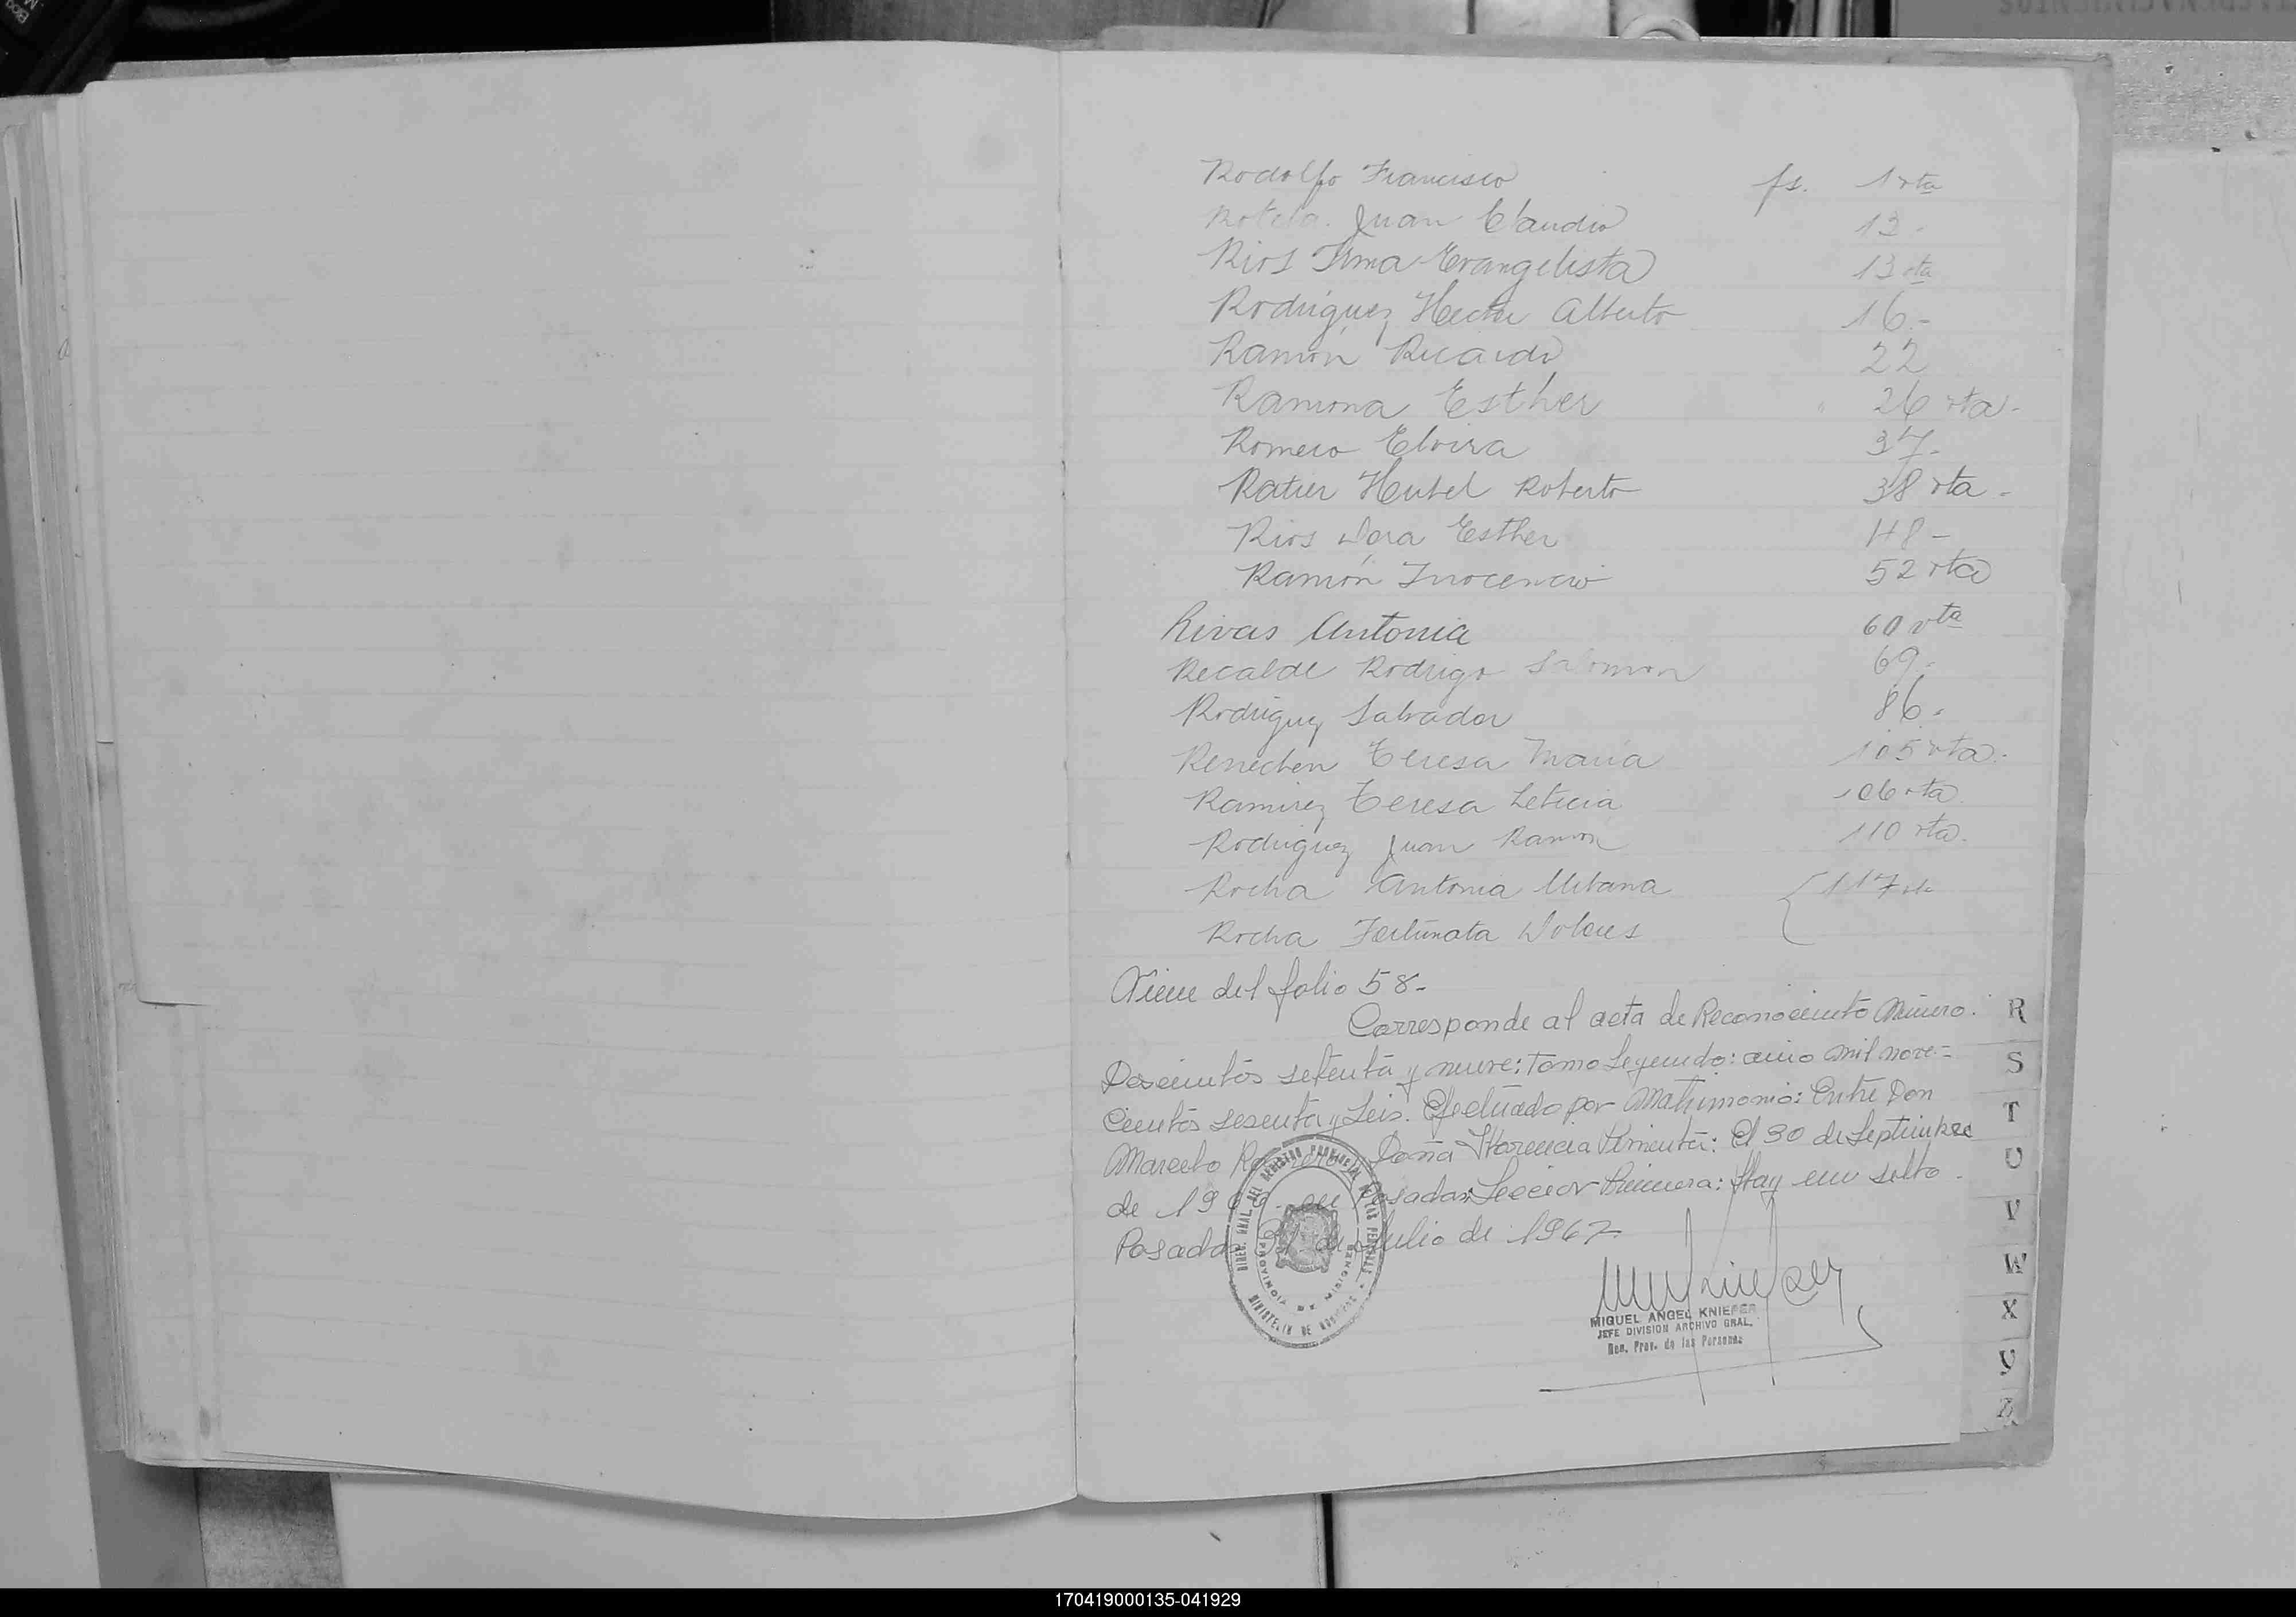 Rodolfo Francisco fs. 1 vta
Rotela Juan Claudio 13.
Rios Irma Evangelista 13 vta
Rodriguez Hector Alberto 16.-
Ramón Ricardo 22
Ramona Esther " 26 vta-
Romero Elvira 37-
Ratier Heubel Roberto 38 vta-
Rios Dora Esther 48-
Ramón Inocencio 52 vta
Rivas Antonia 60 vta
Recalde Rodrigo Salomon 69.-
Rodriguez Salvador 86.
Renechen Teresa Maria 105 vta.-
Ramirez Teresa Leticia 106 vta
Rodriguez Juan Ramon 110 vta.
Rocha Antonia Urbana { 117 vta
Rocha Fortunata Dolores
Viene del folio 58-
Corresponde al acta de Reconocimiento Número.
Doscientos setenta y nueve: tomo Segundo: año mil nove=
cientos sesenta y Seis. Efectuado por Matrimonio: Entre Don
Marcelo Doña Florencia Pimenta: El 30 de Septiembre
de 19 en Posadas Seccion Primera: Hay un sello.
Posadas 31 de Julio de 1967.
DIREC. GRAL. DEL REGISTRO PROVINCIAL DE LAS PERSONAS
PROVINCIA DE MISIONES
MINISTERIO DE GOBIERNO
MIGUEL ANGEL KNIEFER
JEFE DIVISION ARCHIVO GRAL.
Reg. Prov. de las Personas
R
S
T
U
V
W
X
Y
Z
170419000135-041929